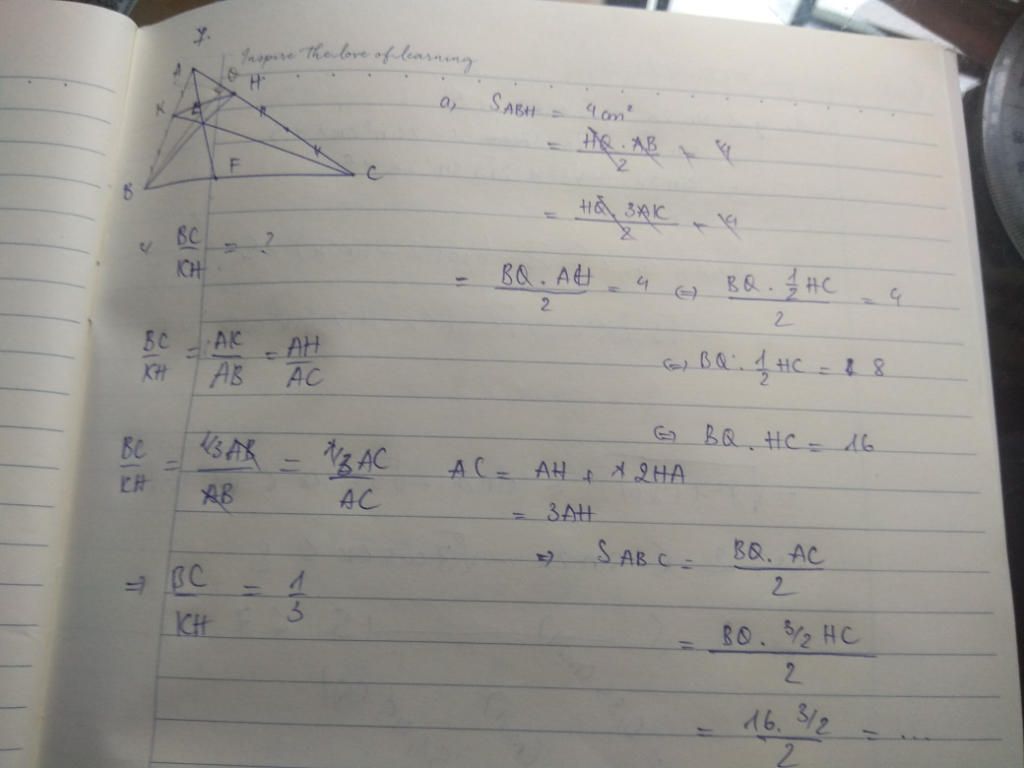 7.
Inspire The love of learning
A
Q
H
K
E
B
F
C
a, SABH = 4cm²
= HQ . AB / 2 = 4
= HQ 3AK / 2 = 4
= BQ . AH / 2 = 4 ⇔ BQ . 1/2 HC / 2 = 4
⇔ BQ . 1/2 HC = 8
⇔ BQ . HC = 16
BC / KH = ?
BC / KH = AK / AB = AH / AC
BC / KH = 1/3AB / AB = 1/3 AC / AC
AC = AH + 2HA
= 3AH
⇒ BC / KH = 1 / 3
⇒ SABC = BQ . AC / 2
= BQ . 3/2 HC / 2
= 16 . 3/2 / 2 = ...